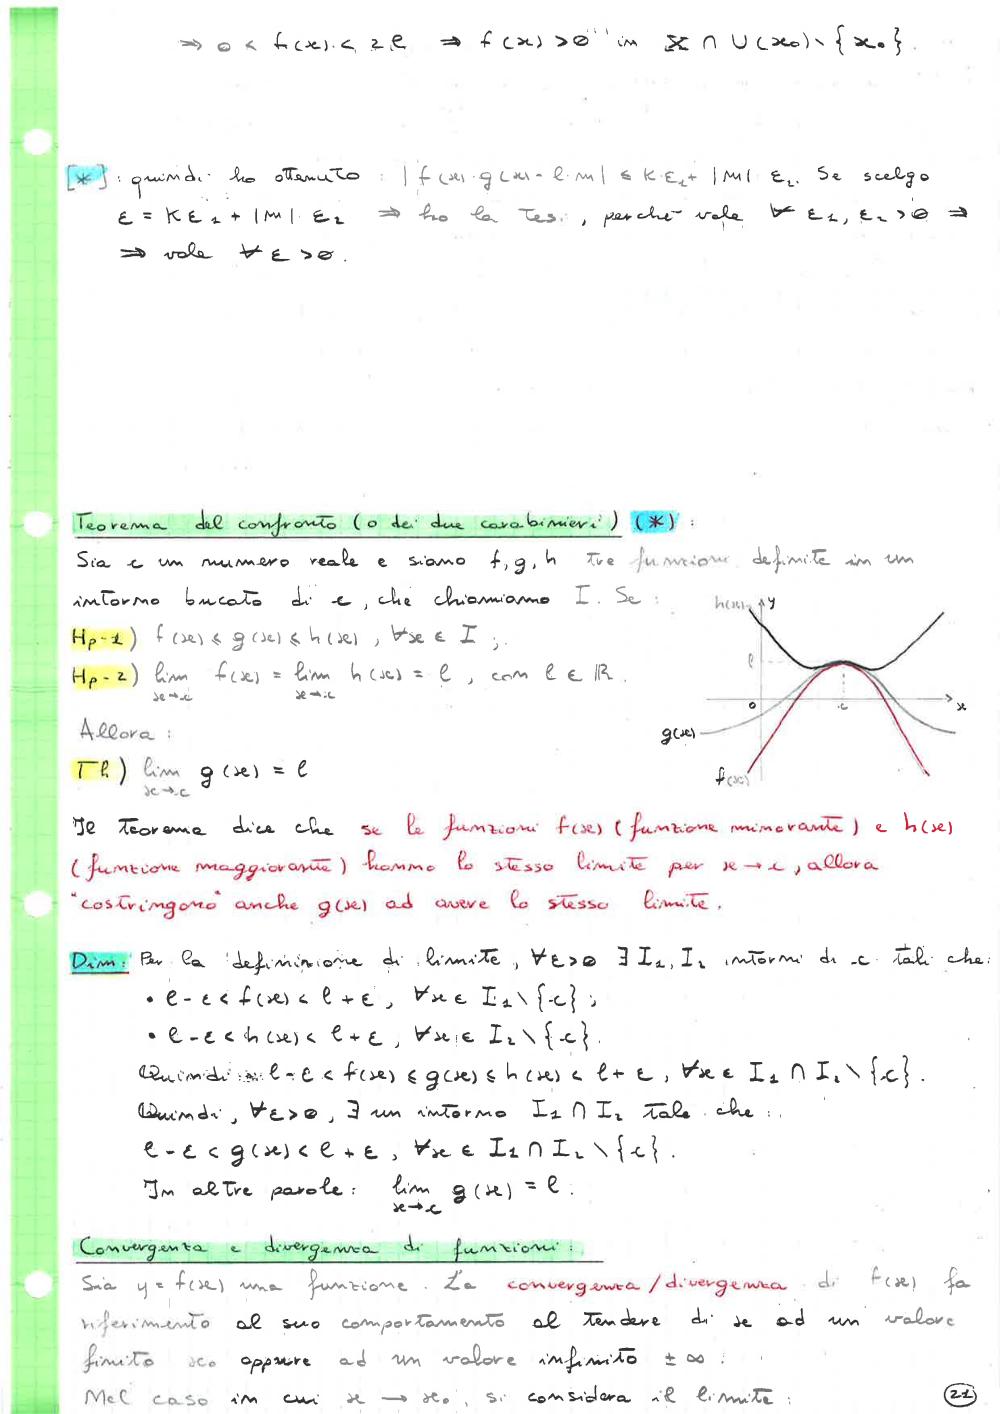 ⇒ 0 < f(x) < 2l ⇒ f(x) > 0 in X ∩ U(x₀) \ {x₀}.
[*]: quindi ho ottenuto: |f(x)·g(x) - l·m| ≤ K·ε₁ + |m|·ε₂. Se scelgo
ε = Kε₁ + |m|·ε₂ ⇒ ho la tesi, perché vale ∀ ε₁, ε₂ > 0 ⇒
⇒ vale ∀ ε > 0.
Teorema del confronto (o dei due carabinieri) (*):
Sia c un numero reale e siano f, g, h tre funzioni definite in un
intorno bucato di c, che chiamiamo I. Se:
Hp-1) f(x) ≤ g(x) ≤ h(x), ∀x ∈ I;
Hp-2) lim x→c f(x) = lim x→c h(x) = l, con l ∈ ℝ.
Allora:
Th) lim x→c g(x) = l
h(x)
y
l
0
c
x
g(x)
f(x)
Il teorema dice che se le funzioni f(x) (funzione minorante) e h(x)
(funzione maggiorante) hanno lo stesso limite per x→c, allora
"costringono" anche g(x) ad avere lo stesso limite.
Dim: Per la definizione di limite, ∀ε>0 ∃ I₁, I₂ intorni di c tali che:
• l-ε < f(x) < l+ε, ∀x ∈ I₁ \ {c};
• l-ε < h(x) < l+ε, ∀x ∈ I₂ \ {c}.
Quindi: l-ε < f(x) ≤ g(x) ≤ h(x) < l+ε, ∀x ∈ I₁ ∩ I₂ \ {c}.
Quindi, ∀ε>0, ∃ un intorno I₁ ∩ I₂ tale che:
l-ε < g(x) < l+ε, ∀x ∈ I₁ ∩ I₂ \ {c}.
In altre parole: lim x→c g(x) = l.
Convergenza e divergenza di funzioni:
Sia y = f(x) una funzione. La convergenza/divergenza di f(x) fa
riferimento al suo comportamento al tendere di x ad un valore
finito x₀ oppure ad un valore infinito ±∞.
Nel caso in cui x → x₀, si considera il limite:
21